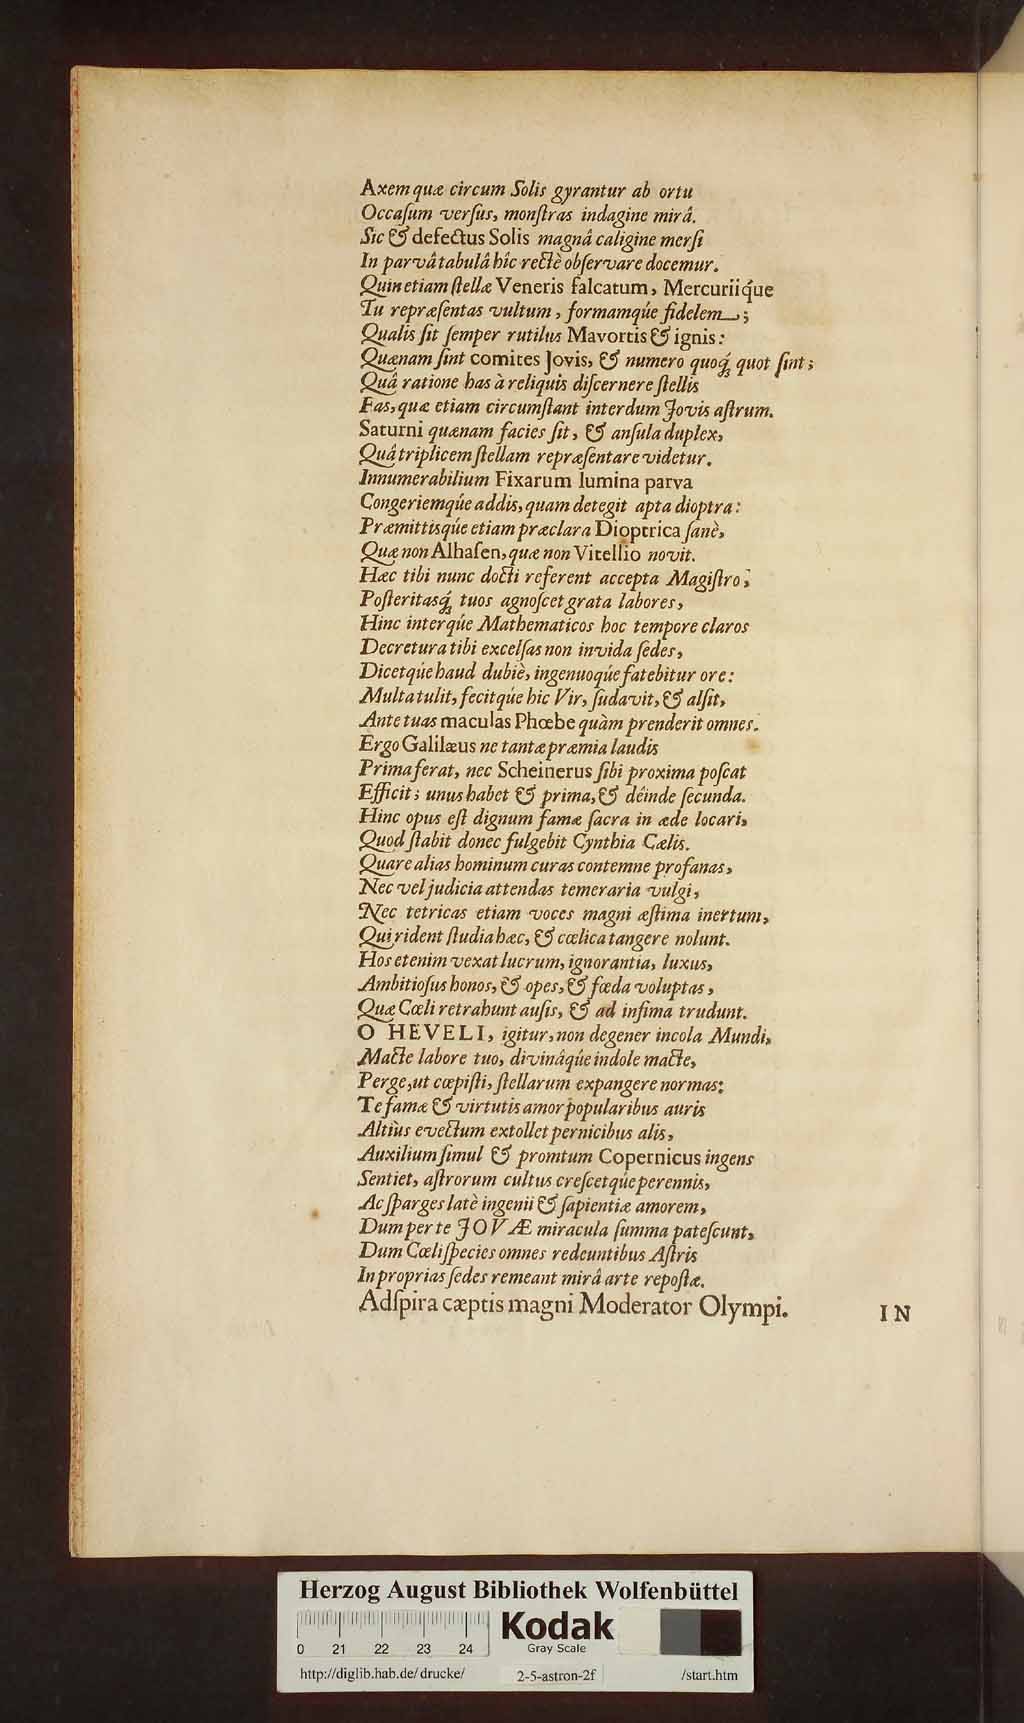 Axem quæ circum Solis gyrantur ab ortu
Occaſum verſus, monſtras indagine mirâ.
Sic & defectus Solis magnâ caligine merſi
In parvâ tabulâ hîc rectè obſervare docemur.
Quin etiam ſtellæ Veneris falcatum, Mercuriiq́ue
Tu repræſentas vultum, formamq́ue fidelem;
Qualis ſit ſemper rutilus Mavortis & ignis:
Quænam ſint comites Jovis, & numero quoq́ꝫ quot ſint;
Quâ ratione has à reliquis diſcernere ſtellis
Fas, quæ etiam circumſtant interdum Jovis aſtrum.
Saturni quænam facies ſit, & anſula duplex,
Quâ triplicem ſtellam repræſentare videtur.
Innumerabilium Fixarum lumina parva
Congeriemq́ue addis, quam detegit apta dioptra:
Præmittisq́ue etiam præclara Dioptrica ſanè,
Quæ non Alhaſen, quæ non Vitellio novit.
Hæc tibi nunc docti referent accepta Magiſtro;
Poſteritasq́ꝫ tuos agnoſcet grata labores,
Hinc interq́ue Mathematicos hoc tempore claros
Decretura tibi excelſas non invida ſedes,
Dicetq́ue haud dubiè, ingenuoq́ue fatebitur ore:
Multa tulit, fecitq́ue hic Vir, ſudavit, & alſit,
Ante tuas maculas Phœbe quàm prenderit omnes.
Ergo Galilæus ne tantæ præmia laudis
Prima ferat, nec Scheinerus ſibi proxima poſcat
Efficit; unus habet & prima, & déinde ſecunda.
Hinc opus eſt dignum famæ ſacra in æde locari,
Quod ſtabit donec fulgebit Cynthia Cælis.
Quare alias hominum curas contemne profanas,
Nec vel judicia attendas temeraria vulgi,
Nec tetricas etiam voces magni æſtima inertum,
Qui rident ſtudia hæc, & cœlica tangere nolunt.
Hos etenim vexat lucrum, ignorantia, luxus,
Ambitioſus honos, & opes, & fœda voluptas,
Quæ Cœli retrahunt auſis, & ad infima trudunt.
O HEVELI, igitur, non degener incola Mundi,
Macte labore tuo, divinâq́ue indole macte,
Perge, ut cœpiſti, ſtellarum expangere normas:
Te famæ & virtutis amor popularibus auris
Altiùs evectum extollet pernicibus alis,
Auxilium ſimul & promtum Copernicus ingens
Sentiet, aſtrorum cultus creſcetq́ue perennis,
Ac ſparges latè ingenii & ſapientiæ amorem,
Dum per te JOVÆ miracula ſumma pateſcunt,
Dum Cœli ſpecies omnes redeuntibus Aſtris
In proprias ſedes remeant mirâ arte repoſtæ.
Adſpira cæptis magni Moderator Olympi.
IN
Herzog August Bibliothek Wolfenbüttel
0 21 22 23 24
Kodak
Gray Scale
http://diglib.hab.de/drucke/ 2-5-astron-2f /start.htm